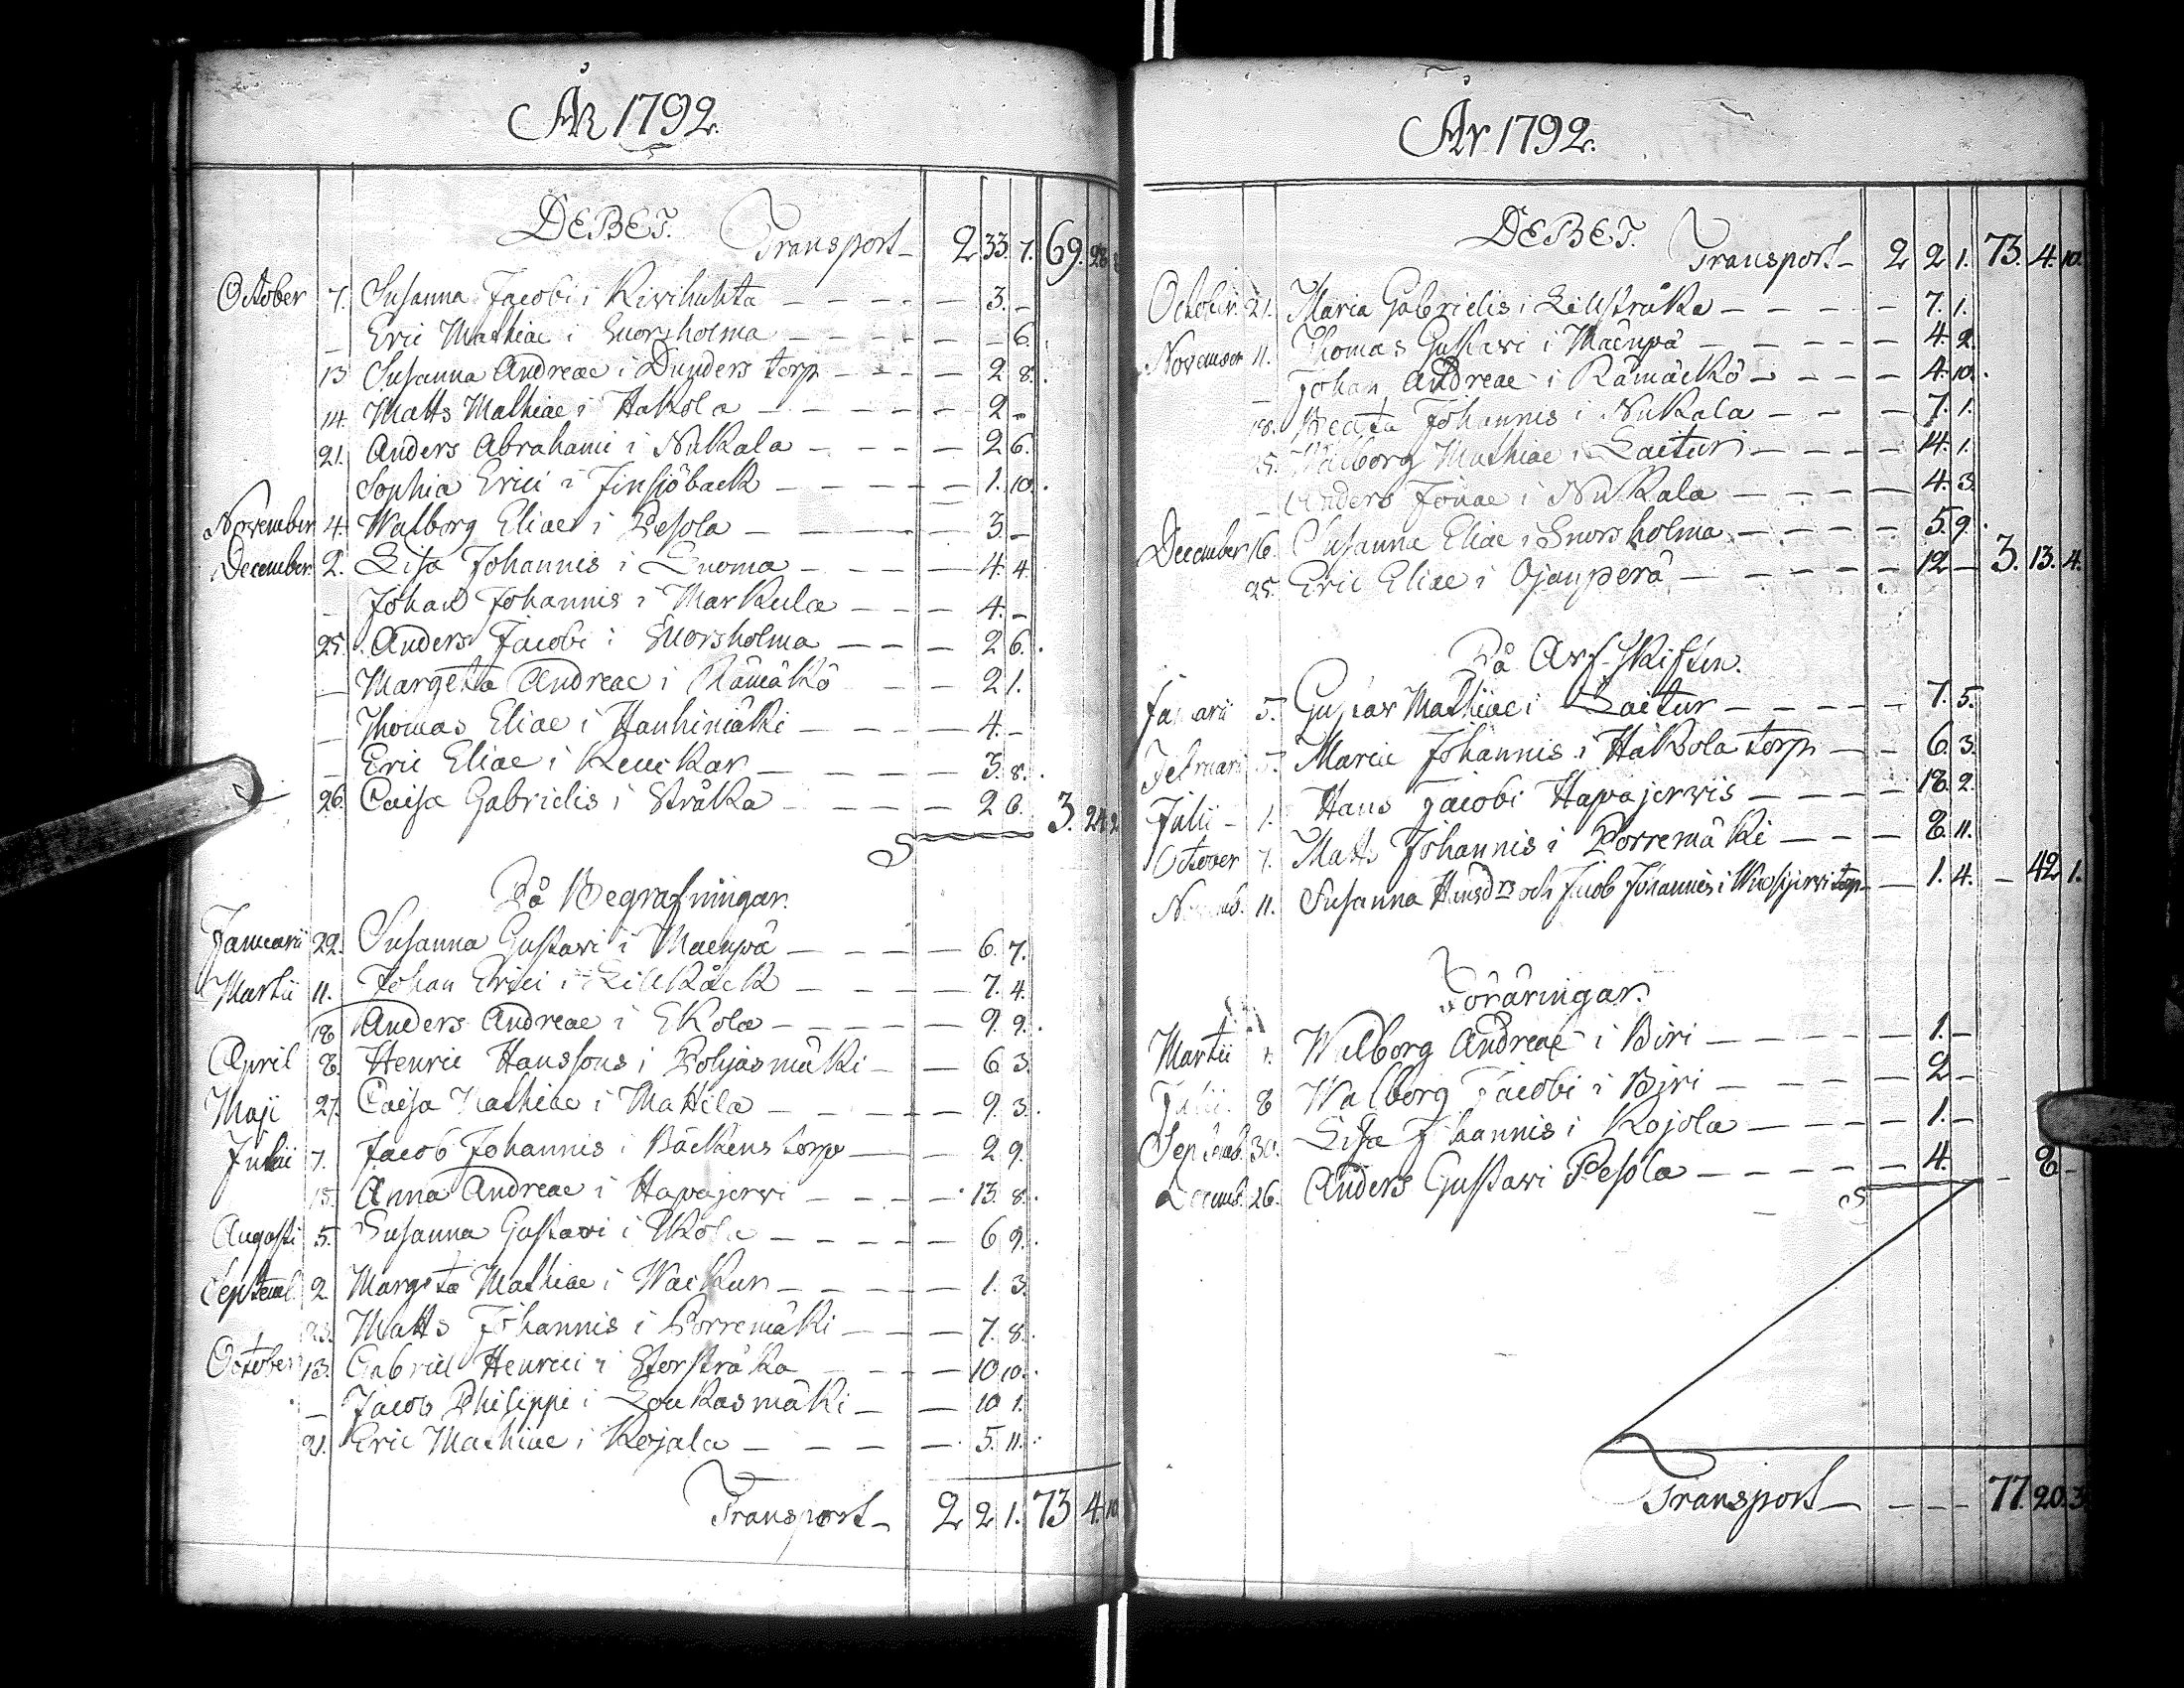 År 1792.
DEBET. Transport 2 33. 7. 69. 28
October 7. Susanna Jacobi i Kivihuhta — 3. —
— Eric Mathiae i Snorsholma — 6.
13 Susanna Andreae i Dunders torp — 2 8.
14. Matts Mathiae i Hakola — 2 —
21. Anders Abrahami i Nukala — 2 6.
Sophia Erici i Finsjöback — 1. 10.
November 4. Walborg Eliae i Pesola — 3. —
December 2. Lisa Johannis i Luoma — 4. 4.
— Johan Johannis i Markula — 4. —
25. Anders Jacobi i Snorsholma — 2 6.
— Margeta Andreae i Rämäkö — 2 1.
— Thomas Eliae i Hanhimäki — 4. —
— Eric Eliae i — 3. 8.
26. Caisa Gabrielis i Stråka — 2 6. 3. 24. 2
På Begrafningar.
Januarii 22. Susanna Gustavi i Maenpä — 6. 7.
Martii 11. Johan Erici i Lillkåck — 7. 4.
18 Anders Andreae i Ekola — 9. 9.
April 8. Henric Hanssons i Pohjasmäki — 6 3.
Maji 27. Caisa Mathiae i Mattila — 9. 3.
Julii 7. Jacob Johannis i Bäckens torp — 2 9.
15. Anna Andreae i Hapajervi — 13. 8.
Augusti 5. Susanna Gustavi i Ekola — 6 9.
Septemb. 2 Margeta Mathiae i Wackur — 1. 3.
23. Matts Johannis i Porremäki — 7. 8.
October 13. Gabriel Henrici i Storstråka — 10 10.
— Jacob Philippi i Loukasmäki — 10 1.
21. Eric Mathiae i Kojala — 5. 11.
Transport — 2 2 1. 73 4. 10
År 1792.
DEBET. Transport — 2 2 1. 73. 4. 10.
October. 21. Maria Gabrielis i Lillstråka — 7. 1.
November 11. Thomas Gustavi i Maenpä — 4. 2.
— Johan Andreae i Rämäckö — 4. 10.
18. Beata Johannis i Nukala — 7. 1.
25. Walborg Mathiae i Laituri — 14. 1.
— Anders Jonae i Nukala — 4. 3.
December 16. Susanna Eliae i Snorsholma — 5. 9.
25. Eric Eliae i Ojanperä — 12 — 3. 13. 4.
På Arf-skiften.
Januarii 5. Gustav Mathiae i Laitur — 7. 5.
Februari 5. Maria Johannis i Håkola torp — 6. 3.
Julii — 1. Hans Jacobi Hapajervis — 18. 2.
October 7. Matts Johannis i Porremäki — 8. 11.
Novemb. 11. Susanna Hansdrs och Jacob Johannis i torp — 1. 4. — 42 1.
Föräringar.
Martii Walborg Andreae i Biri — 1. —
Julii. 8 Walborg Jacobi i Biri — 2 —
Septemb. 30. Lisa Johannis i Kojola — 1. —
Decemb. 26. Anders Gustavi Pesola — 4. — 8 —
Transport — 77. 20. 3.